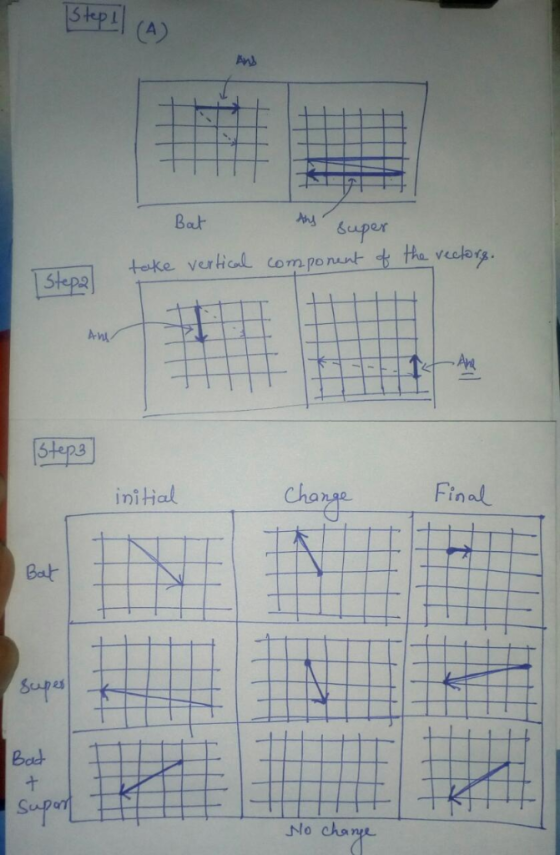 Step1 (A)
Ans
Ans
Bat Super
take vertical component of the vectors.
Step2
Ans
Ans
Step3
initial Change Final
Bat
Super
Bat
+
Super
No change